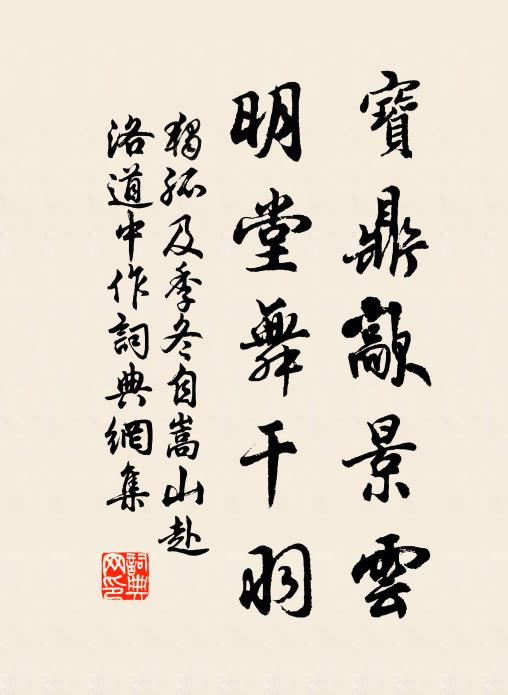 寶鼎歊景雲
明堂舞干羽
獨孤及季冬自嵩山赴
洛道中作詞典網集
詞典网印